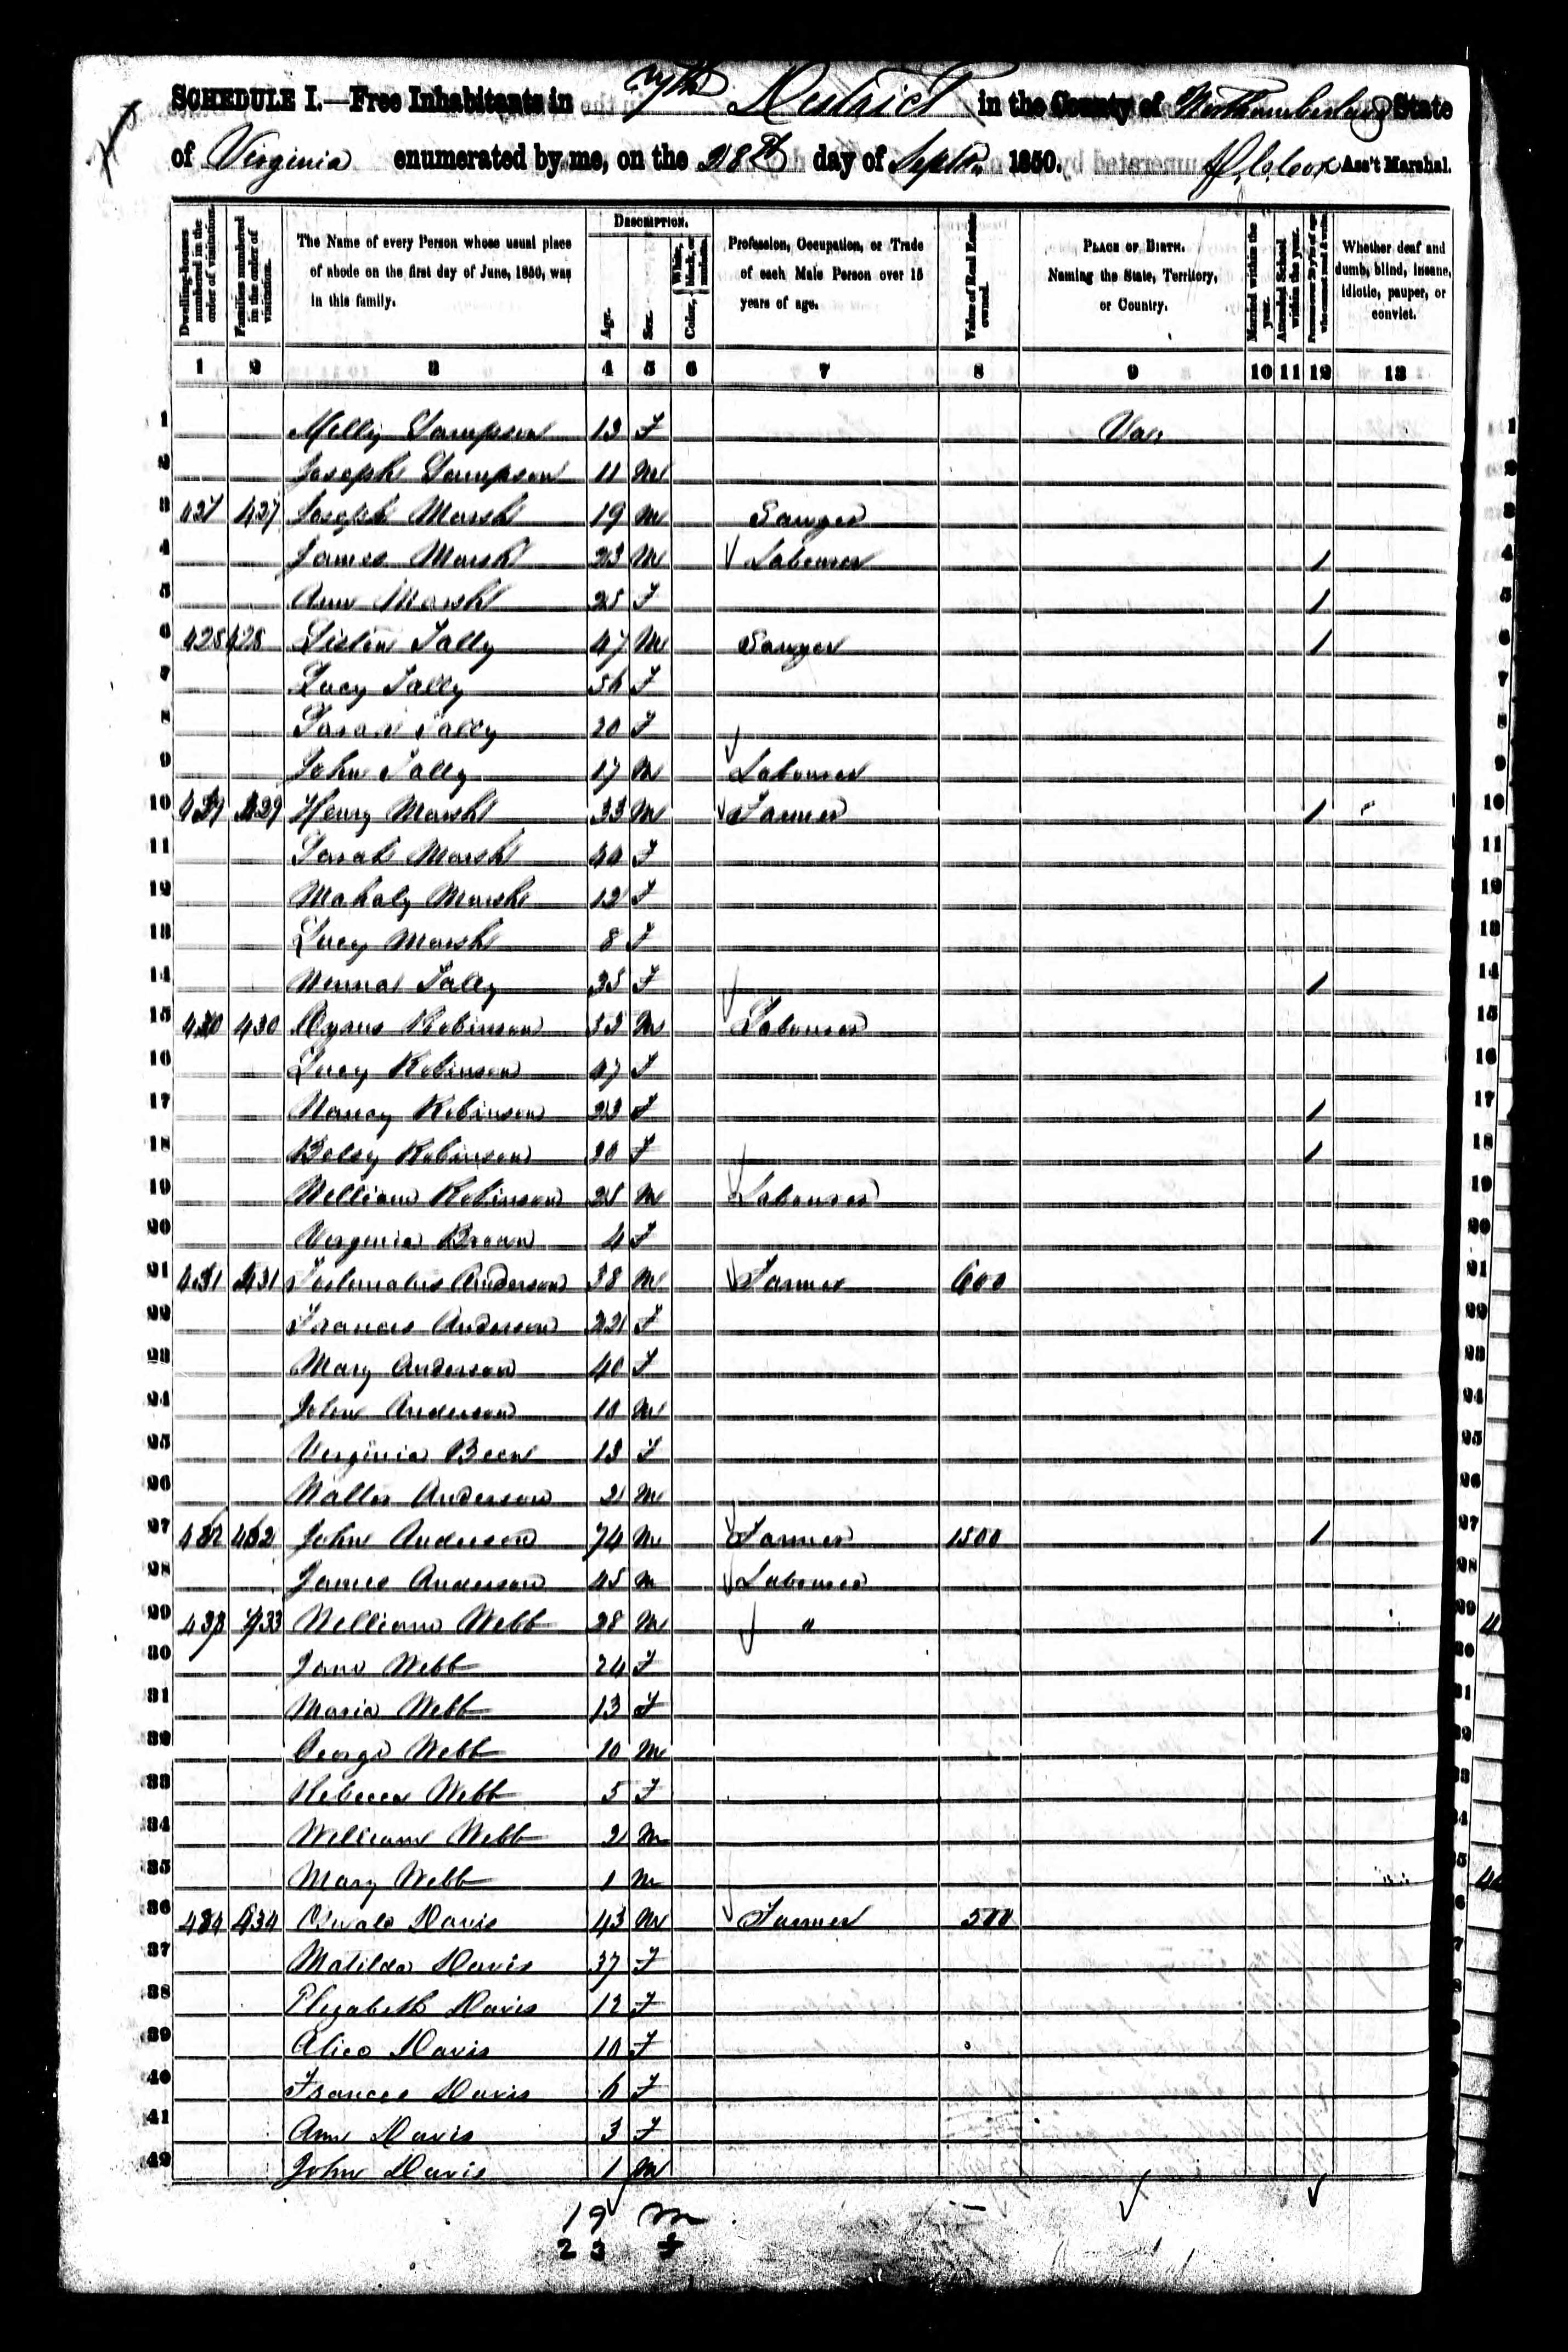 SCHEDULE I.—Free Inhabitants in 7th District in the County of Northumberland State
of Virginia enumerated by me, on the 28th day of Septr. 1850. Ass't Marshal.
Dwelling-houses numbered in the order of visitation.
Families numbered in the order of visitation.
The Name of every Person whose usual place of abode on the first day of June, 1850, was in this family.
DESCRIPTION.
Age.
Sex.
Color, White, black, or mulatto.
Profession, Occupation, or Trade of each Male Person over 15 years of age.
Value of Real Estate owned.
PLACE OF BIRTH. Naming the State, Territory, or Country.
Married within the year.
Attended School within the year.
Persons over 20 y'rs of age who cannot read & write.
Whether deaf and dumb, blind, insane, idiotic, pauper, or convict.
1 2 3 4 5 6 7 8 9 10 11 12 13
1 Milly Sampson 13 F Va. 1
2 Joseph Sampson 11 M 2
3 427 427 Joseph Marsh 19 M Sawyer 3
4 James Marsh 23 M Labourer 1 4
5 Ann Marsh 25 F 1 5
6 428 428 Tally 47 M Sawyer 1 6
7 Lucy Tally 56 F 7
8 Sarah Tally 20 F 8
9 John Tally 17 M Labourer 9
10 429 429 Henry Marsh 33 M Farmer 1 10
11 Sarah Marsh 40 F 11
12 Mahaly Marsh 12 F 12
13 Lucy Marsh 8 F 13
14 Tally 35 F 1 14
15 430 430 Cyrus Robinson M Labourer 15
16 Lucy Robinson 47 F 16
17 Nancy Robinson 23 F 1 17
18 Betsy Robinson 20 F 1 18
19 William Robinson 25 M Labourer 19
20 Virginia Brown 4 F 20
21 431 431 Anderson 38 M Farmer 600 21
22 Frances Anderson 22 F 22
23 Mary Anderson 40 F 23
24 John Anderson 10 M 24
25 Virginia 13 F 25
26 Walter Anderson 2 M 26
27 432 432 John Anderson 74 M Farmer 1500 1 27
28 James Anderson 45 M Labourer 28
29 433 433 William Webb 28 M " 29
30 Jane Webb 24 F 30
31 Maria Webb 13 F 31
32 George Webb 10 M 32
33 Rebecca Webb 5 F 33
34 William Webb 2 M
35 Mary Webb 1 M
36 434 434 Oswald Davis 43 M Farmer 500
37 Matilda Davis 37 F
38 Elizabeth Davis 12 F
39 Alice Davis 10 F
40 Frances Davis 6 F
41 Ann Davis 3 F
42 John Davis 1 M
19 m
23 f